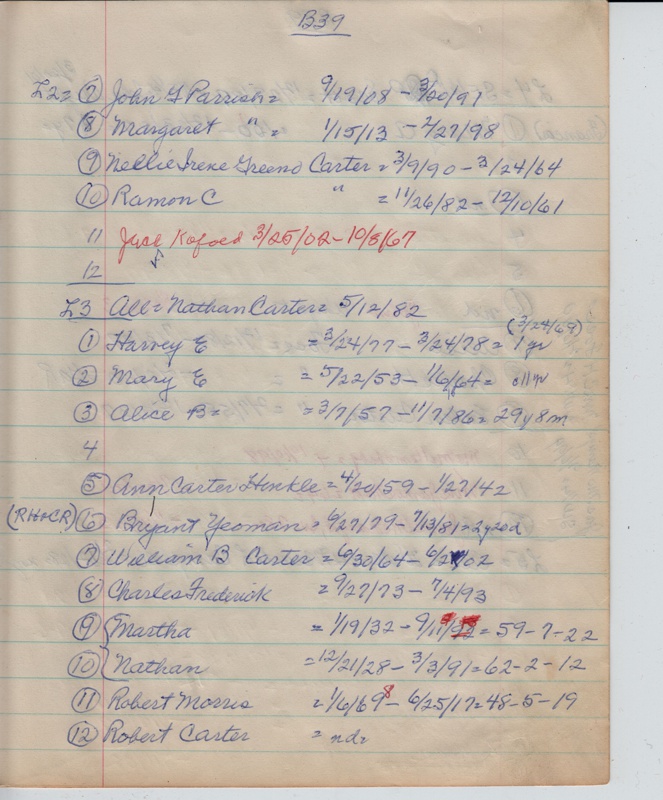 B39
L2= 7 John G Parrish = 9/19/08 - 3/20/91
8 Margaret " = 1/15/13 - 2/27/98
9 Nellie Irene Greend Carter = 3/9/90 - 3/24/64
10 Ramon C " = 11/26/82 - 12/10/61
11 Jack Kofoed 3/25/02 - 10/8/67
12
L3 All = Nathan Carter = 5/12/82
(3/24/69)
1 Harvey E = 3/24/77 - 3/24/78 = 1 yr
2 Mary E = 5/22/53 - 1/6/64 =
3 Alice B = = 3/7/57 - 11/7/86 = 29y 8m
4
5 Ann Carter Henkle = 4/20/59 - 1/27/42
(RH+CR) 6 Bryant Yeoman = 6/27/79 - 7/13/81 = 2y20d
7 William B Carter = 6/30/64 - 6/2/02
8 Charles Frederick = 9/27/73 - 7/4/93
9 Martha = 1/19/32 - 9/11/ = 59-7-22
10 Nathan = 12/21/28 - 3/3/91 = 62-2-12
11 Robert Morris = 1/6/69 8 - 6/25/17 = 48-5-19
12 Robert Carter = nd =